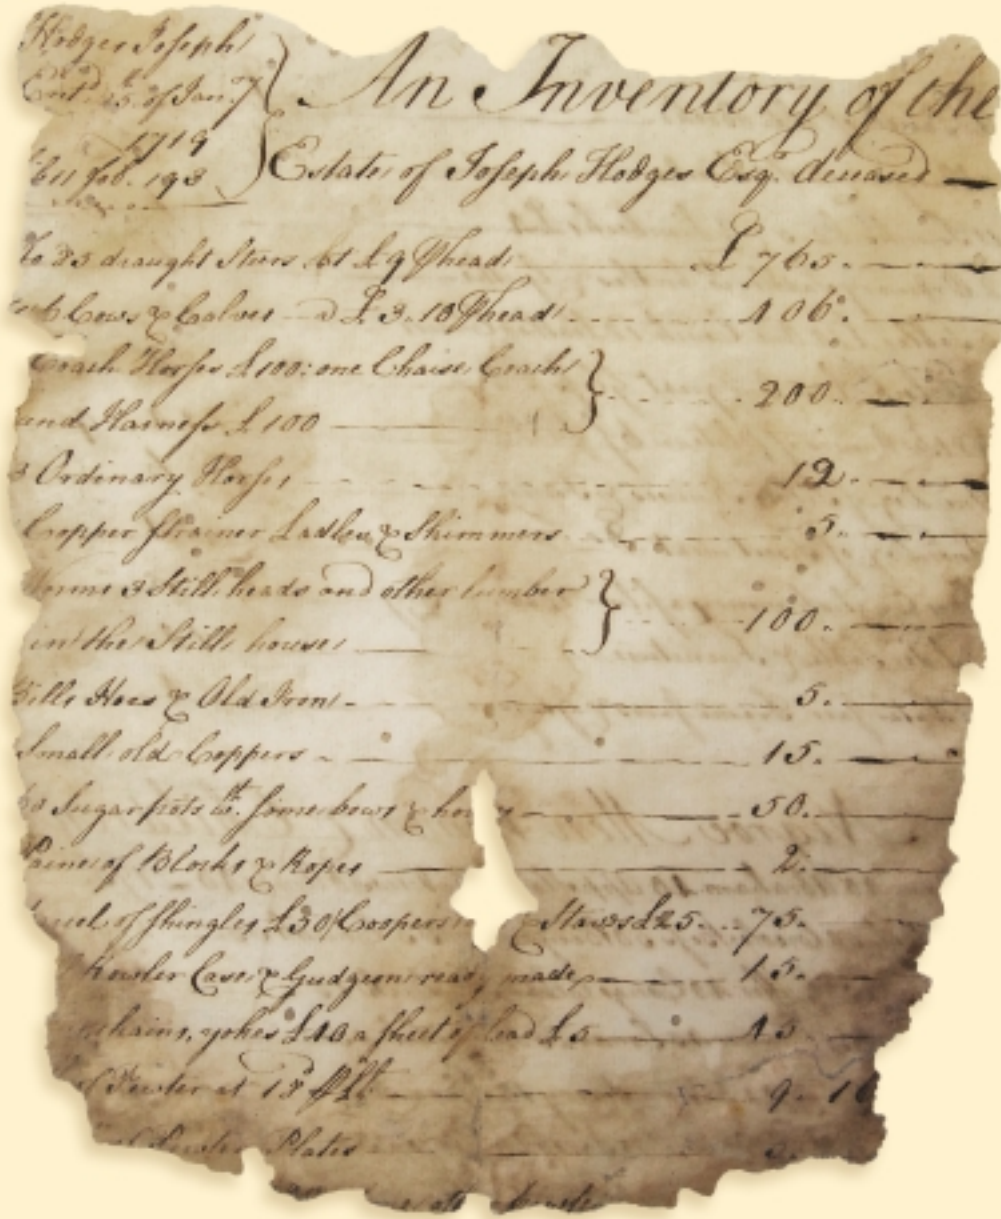 Hodges Joseph
Ent.d 15th of Jan.ry
1719
Lib: 11 fol. 193
An Inventory of the
Estate of Joseph Hodges Esq.r deceased
To 85 draught Steers at £9 ℔ head £ 765.
Cows & Calves a £3.10 ℔ head 406.
Coach Horses £100: one Chaise Coach
and Harness £100 200.
3 Ordinary Horses 12.
Copper strainer Ladles & Skimmers 5.
Worme 3 Still heads and other lumber
in the Still house 100.
Bills Hoes & Old Iron 5.
Small old Coppers 15.
Sugar pots wt. some bows & 50.
of Blocks & Ropes 2.
of shingles £30 Coopers Staves £25. 75.
Pewter Case & Gudgeons ready made 15.
chains, yokes £40 a sheet of lead £5 45
Pewter at 18d ℔ lb 9. 16
Pewter Plates